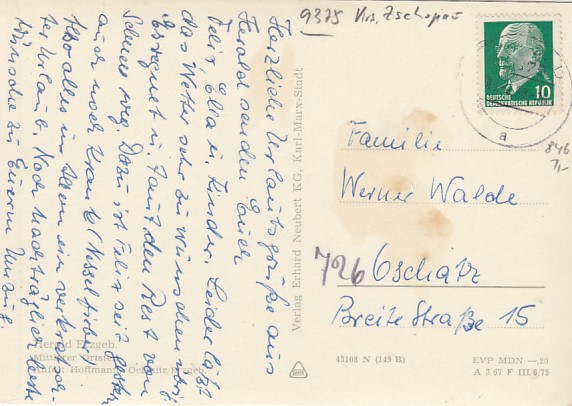 9375 Krs. Zschopau
Herzliche Urlaubsgrüße aus
Herold senden Euch
Felix, Ella u. Kinder. Leider läßt
das Wetter sehr zu wünschen übrig.
Es regnet u. taut den Rest von
Schnee weg. Dazu ist Felix seit gestern
auch noch krank (Nesselfieber).
Also alles in allem ein verkorkster
Urlaub. Noch nachträglich beste
Wünsche zu Eurem Umzug.
Herold Erzgeb.
Mittlerer Ortsteil
Aufn.: Hoffmann, Oelsnitz/Erzgeb.
Verlag Erhard Neubert KG, Karl-Marx-Stadt
DEUTSCHE
DEMOKRATISCHE REPUBLIK
10
a
846
7,-
Familie
Werner Walde
726 Oschatz
Breite Straße 15
43108 N (149 B)
EVP MDN -,20
A 3 67 F III 6/75